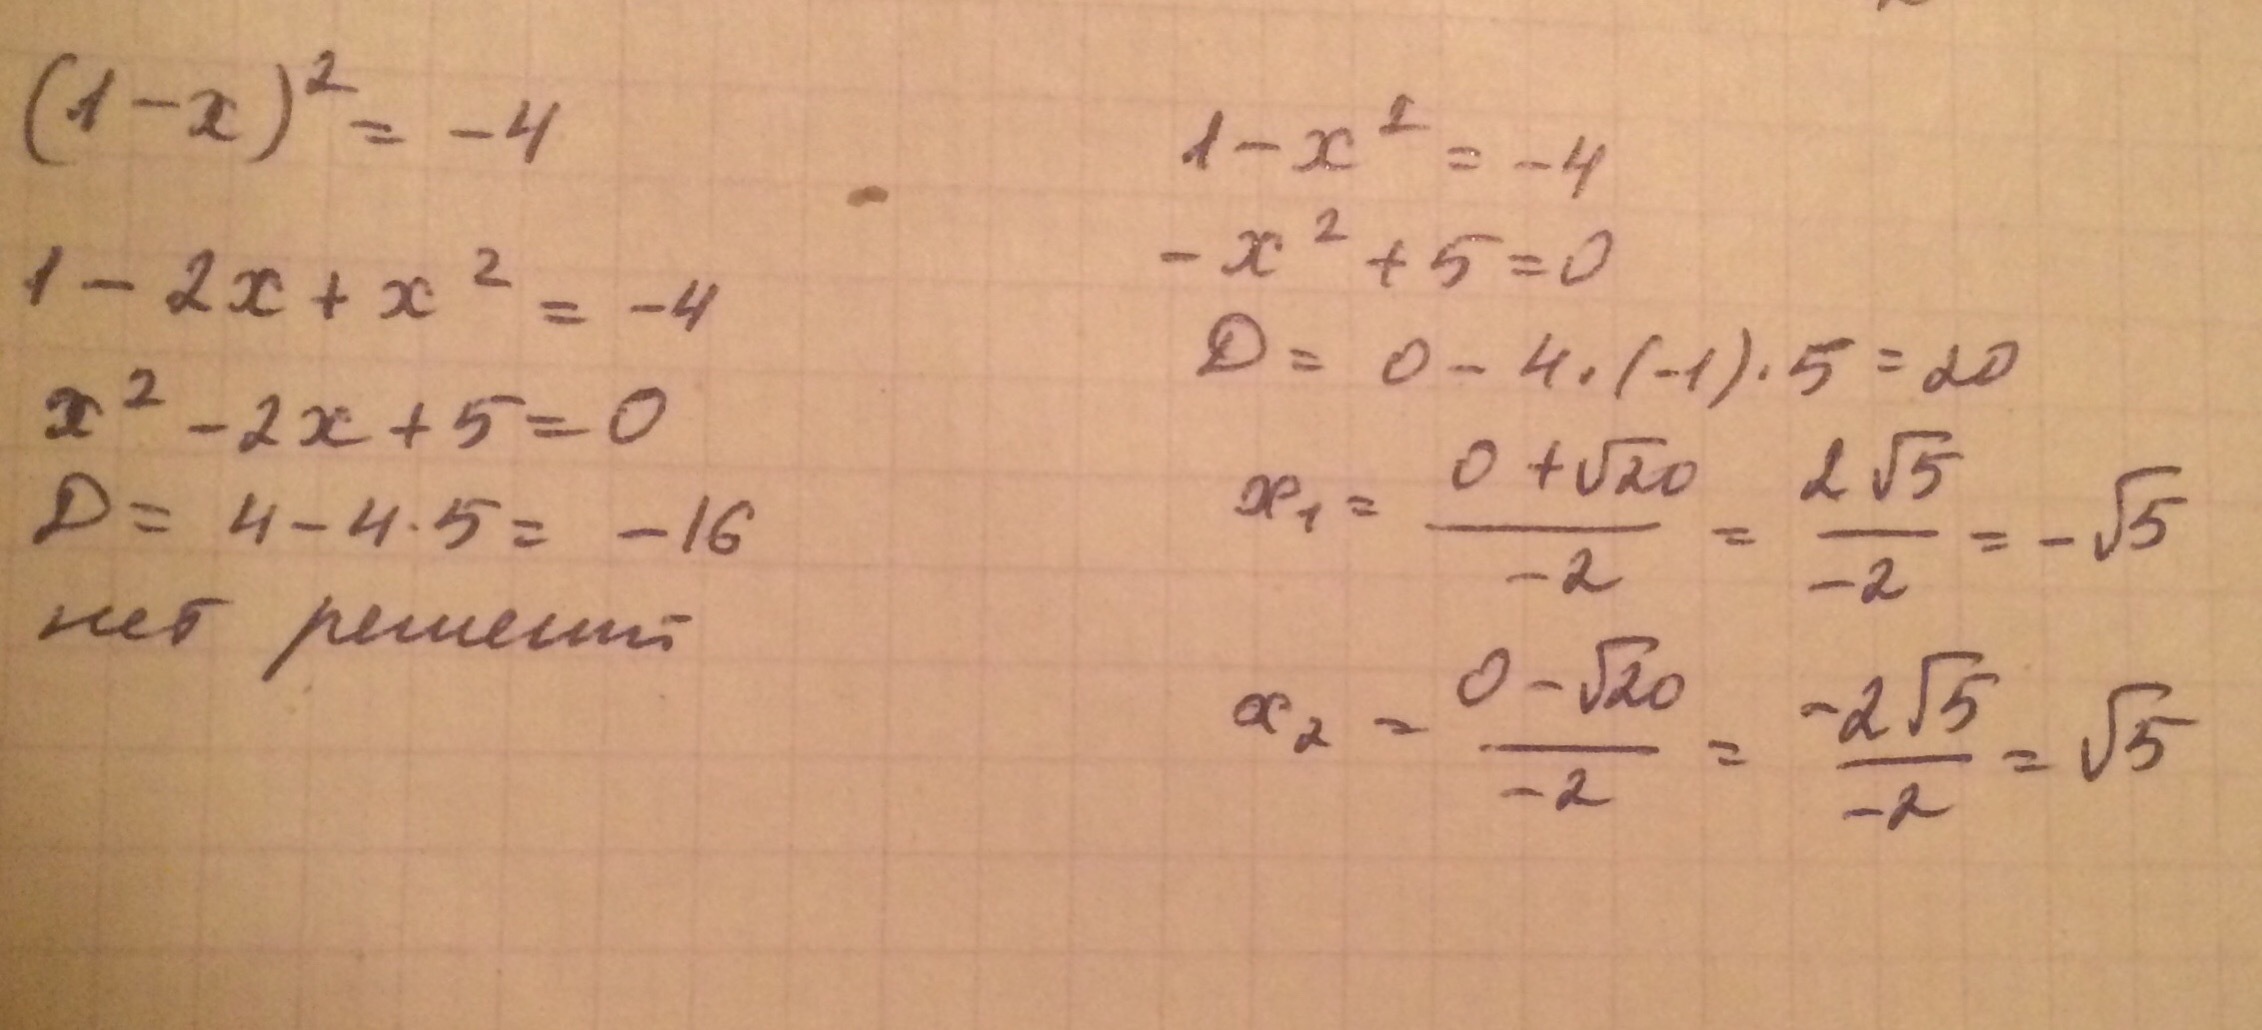 (1-x)² = -4
1 - 2x + x² = -4
x² - 2x + 5 = 0
D = 4 - 4·5 = -16
нет решений
1 - x² = -4
-x² + 5 = 0
D = 0 - 4·(-1)·5 = 20
x₁ = (0 + √20)/(-2) = (2√5)/(-2) = -√5
x₂ = (0 - √20)/(-2) = (-2√5)/(-2) = √5